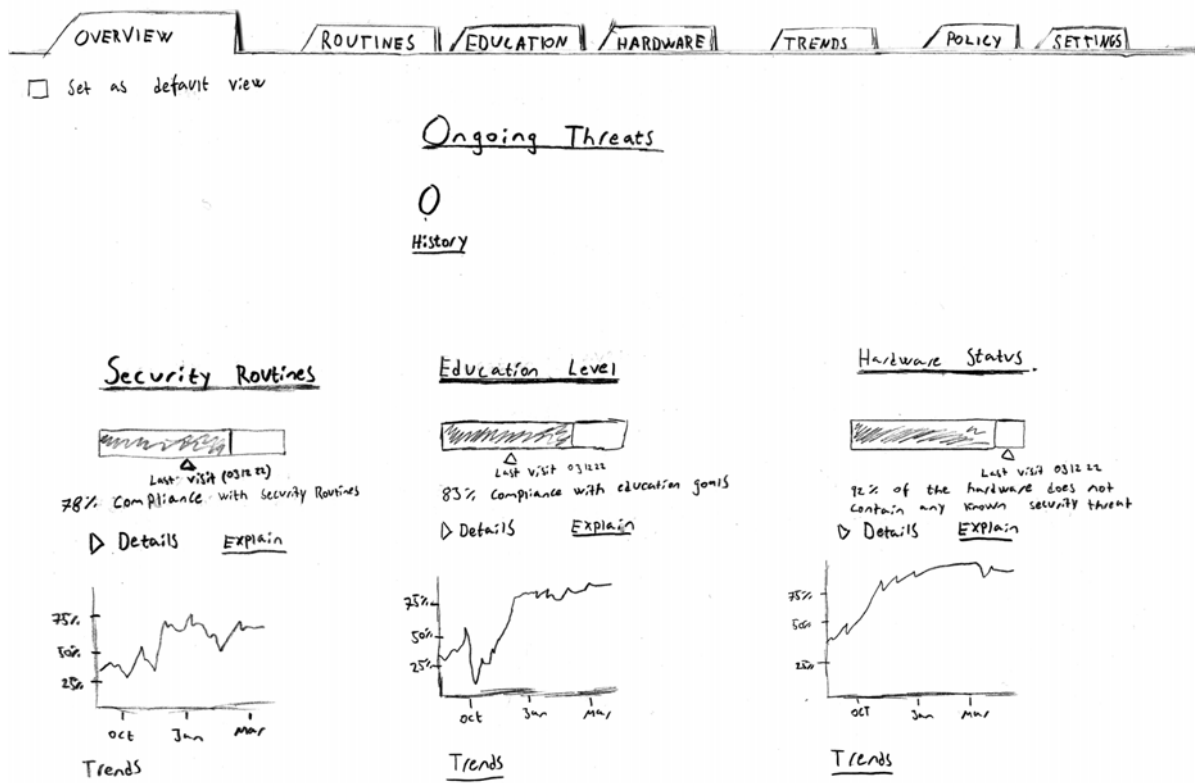 OVERVIEW ROUTINES EDUCATION HARDWARE TRENDS POLICY SETTINGS
Set as default view
Ongoing Threats
0
History
Security Routines
Last visit (031222)
78% Compliance with security Routines
Details Explain
75%
50%
25%
Oct Jan Mar
Trends
Education Level
Last visit 031222
83% compliance with education goals
Details Explain
75%
50%
25%
Oct Jan Mar
Trends
Hardware Status.
Last visit 031222
92% of the hardware does not
contain any known security threat
Details Explain
75%
50%
25%
OCT Jan Mar
Trends